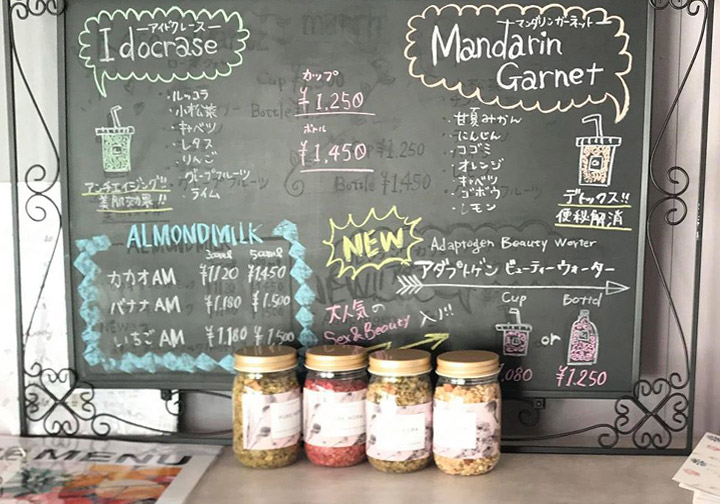 アイドクレース
Idocrase
・ルッコラ
・小松菜
・キャベツ
・レタス
・りんご
・グレープフルーツ
・ライム
アンチエイジング!!
美肌効果!!
カップ
¥1.250
ボトル
¥1.450
マンダリンガーネット
Mandarin
Garnet
・甘夏みかん
・にんじん
・コゴミ
・オレンジ
・キャベツ
・ゴボウ
・レモン
デトックス!!
便秘解消
ALMONDMILK
300ml 500ml
カカオAM ¥1.120 ¥1.450
バナナAM ¥1.180 ¥1.500
いちごAM ¥1.180 ¥1.500
NEW
Adaptogen Beauty Worter
アダプトゲン ビューティーウォーター
大人気の
Sex&Beauty 入り!!
Cup or Bottel
080 ¥1.250
MENU